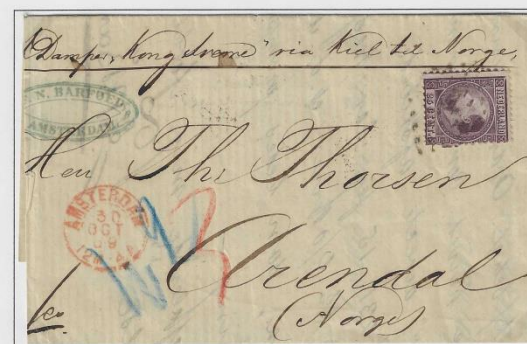 "Damper, Kong Sverre" via Kiel til Norge,
N. BARFOED
AMSTERDAM
Herr Th: Thorsen
AMSTERDAM
30
OCT
69
12
3
Arendal
(Norge)
NEDERLAND